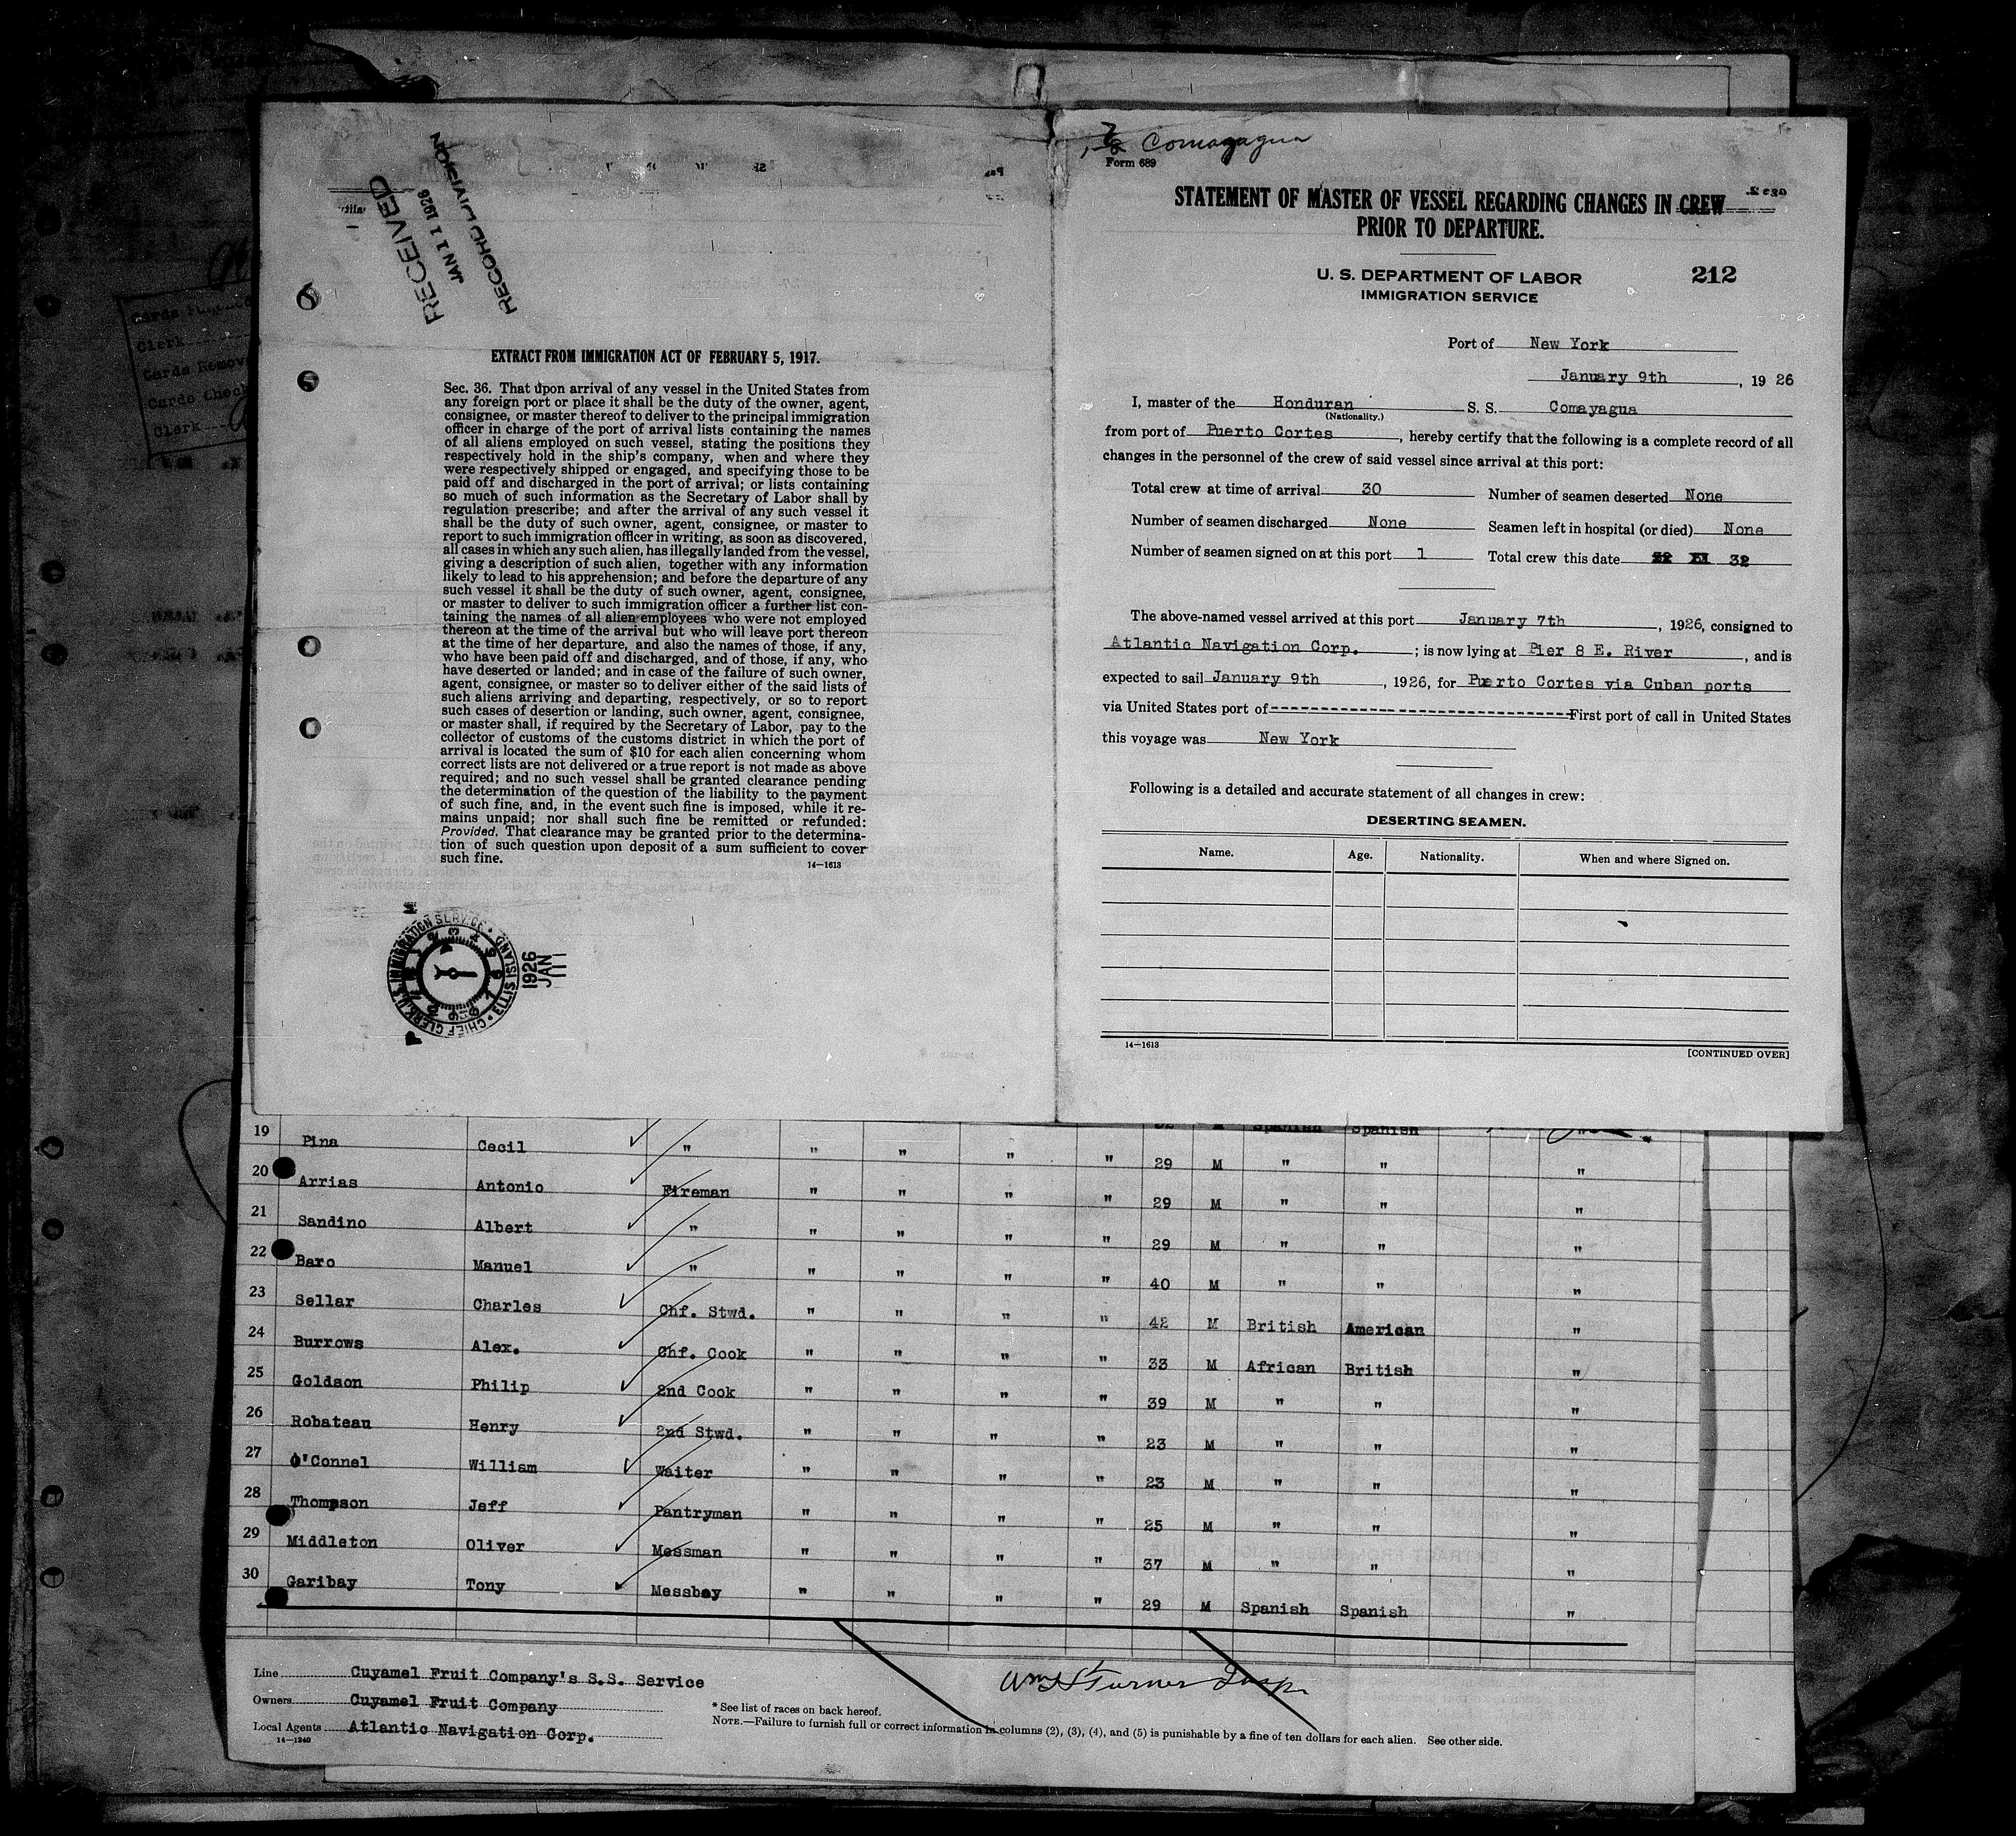 RECEIVED
JAN 11 1926
RECORD DIVISION
EXTRACT FROM IMMIGRATION ACT OF FEBRUARY 5, 1917.
Sec. 36. That upon arrival of any vessel in the United States from
any foreign port or place it shall be the duty of the owner, agent,
consignee, or master thereof to deliver to the principal immigration
officer in charge of the port of arrival lists containing the names
of all aliens employed on such vessel, stating the positions they
respectively hold in the ship's company, when and where they
were respectively shipped or engaged, and specifying those to be
paid off and discharged in the port of arrival; or lists containing
so much of such information as the Secretary of Labor shall by
regulation prescribe; and after the arrival of any such vessel it
shall be the duty of such owner, agent, consignee, or master to
report to such immigration officer in writing, as soon as discovered,
all cases in which any such alien, has illegally landed from the vessel,
giving a description of such alien, together with any information
likely to lead to his apprehension; and before the departure of any
such vessel it shall be the duty of such owner, agent, consignee,
or master to deliver to such immigration officer a further list con-
taining the names of all alien employees who were not employed
thereon at the time of the arrival but who will leave port thereon
at the time of her departure, and also the names of those, if any,
who have been paid off and discharged, and of those, if any, who
have deserted or landed; and in case of the failure of such owner,
agent, consignee, or master so to deliver either of the said lists of
such aliens arriving and departing, respectively, or so to report
such cases of desertion or landing, such owner, agent, consignee,
or master shall, if required by the Secretary of Labor, pay to the
collector of customs of the customs district in which the port of
arrival is located the sum of $10 for each alien concerning whom
correct lists are not delivered or a true report is not made as above
required; and no such vessel shall be granted clearance pending
the determination of the question of the liability to the payment
of such fine, and, in the event such fine is imposed, while it re-
mains unpaid; nor shall such fine be remitted or refunded:
Provided, That clearance may be granted prior to the determina-
tion of such question upon deposit of a sum sufficient to cover
such fine.
14—1613
CHIEF CLERK U.S. IMMIGRATION SERVICE ELLIS ISLAND
1926
JAN 11
Comayagua
Form 689
STATEMENT OF MASTER OF VESSEL REGARDING CHANGES IN CREW
PRIOR TO DEPARTURE.
U. S. DEPARTMENT OF LABOR
IMMIGRATION SERVICE
212
Port of New York
January 9th, 1926
I, master of the Honduran S. S. Comayagua
(Nationality.)
from port of Puerto Cortes, hereby certify that the following is a complete record of all
changes in the personnel of the crew of said vessel since arrival at this port:
Total crew at time of arrival 30 Number of seamen deserted None
Number of seamen discharged None Seamen left in hospital (or died) None
Number of seamen signed on at this port 1 Total crew this date 32
The above-named vessel arrived at this port January 7th, 1926, consigned to
Atlantic Navigation Corp.; is now lying at Pier 8 E. River, and is
expected to sail January 9th, 1926, for Puerto Cortes via Cuban ports
via United States port of First port of call in United States
this voyage was New York
Following is a detailed and accurate statement of all changes in crew:
DESERTING SEAMEN.
Name. Age. Nationality. When and where Signed on.
14—1613
[CONTINUED OVER]
Spanish Spanish
19 Pina Cecil " " " " " 29 M " " "
20 Arrias Antonio Fireman " " " " 29 M " " "
21 Sandino Albert " " " " " 29 M " " "
22 Baro Manuel " " " " " 40 M " " "
23 Sellar Charles Chf. Stwd. " " " " 42 M British American "
24 Burrows Alex. Chf. Cook " " " " 33 M African British "
25 Goldson Philip 2nd Cook " " " " 39 M " " "
26 Robateau Henry 2nd Stwd. " " " " 23 M " " "
27 O'Connel William Waiter " " " " 23 M " " "
28 Thompson Jeff Pantryman " " " " 25 M " " "
29 Middleton Oliver Messman " " " " 37 M " " "
30 Garibay Tony Messboy " " " " 29 M Spanish Spanish "
Line Cuyamel Fruit Company's S.S. Service
Owners Cuyamel Fruit Company
Local Agents Atlantic Navigation Corp.
14—1240
Turner Insp.
* See list of races on back hereof.
NOTE.—Failure to furnish full or correct information in columns (2), (3), (4), and (5) is punishable by a fine of ten dollars for each alien. See other side.
Clerk
Cards Remov
Cards Check
Clerk